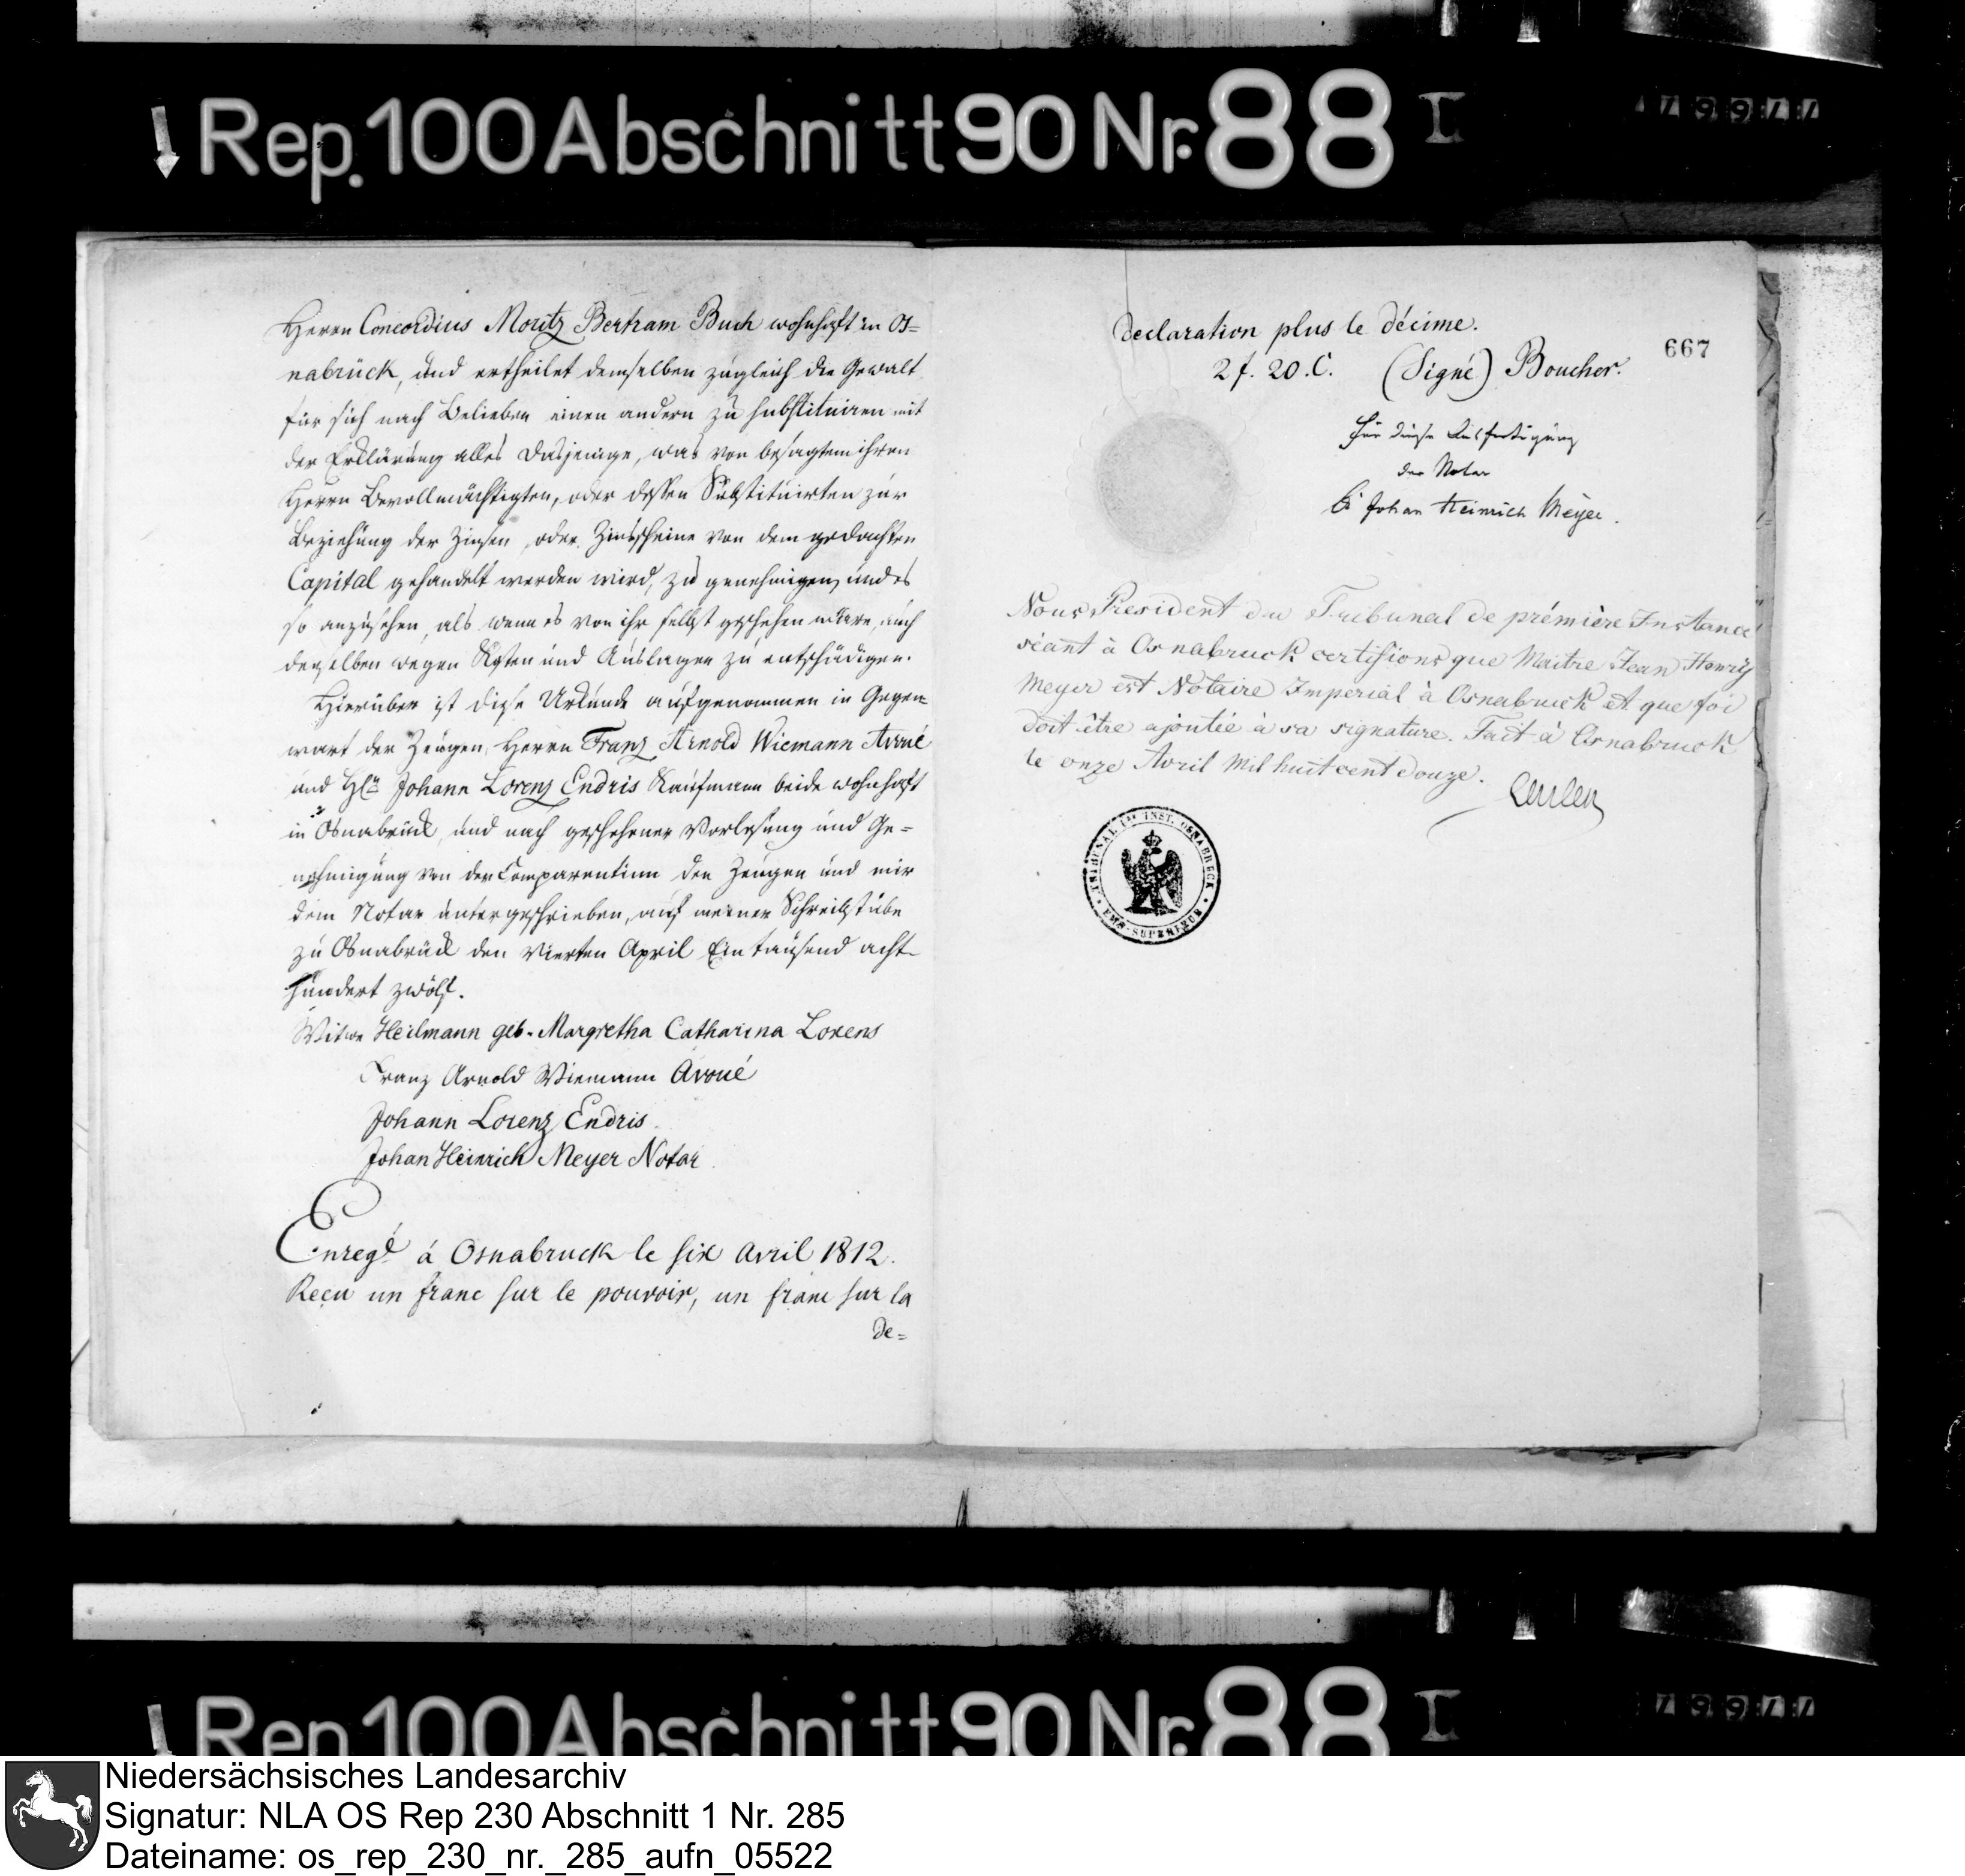 Rep. 100 Abschnitt 90 Nr. 88 I
Herrn Concordius Moritz Bertram Buch wohnhaft in Os=
nabrück, und ertheilet demselben zugleich die Gewalt
für sich nach Belieben einen andern zu substituiren mit
der Erklärung alles dasjenige, was von besagtem ihren
Herrn Bevollmächtigten, oder dessen Substituirten zur
Beziehung der Zinsen, oder Zinsscheine von dem gedachten
Capital gehandelt werden wird, zu genehmigen, und es
so anzusehen, als wenn es von ihr selbst geschehen wäre, auch
denselben wegen Kosten und Auslagen zu entschädigen.
Hierüber ist diese Urkunde aufgenommen in Gegen=
wart der Zeugen, Herrn Franz Arnold Wiemann Avoué
und Hrn Johann Lorenz Endris Kaufmann beide wohnhaft
in Osnabrück, und nach geschehener Vorlesung und Ge=
nehmigung von der Comparentinn den Zeugen und mir
dem Notar untergeschrieben, auf meiner Schreibstube
zu Osnabrück den vierten April Eintausend acht-
hundert zwölf.
Witwe Heilmann geb. Margretha Catharina Lorens
Franz Arnold Wiemann Avoué
Johann Lorenz Endris.
Johan Heinrich Meyer Notar.
Enregé à Osnabruck le six avril 1812.
Reçu un franc sur le pouvoir, un franc sur la
de=
667
declaration plus le décime.
2 f. 20. C. (Signé) Boucher.
Für diese Ausfertigung
der Notar
Johan Heinrich Meyer.
Nous President du Tribunal de prémière Instance
séant à Osnabruck certifions que Maitre Jean Henry
Meyer est Notaire Imperial à Osnabruck et que foi
doit être ajoutée à sa signature. Fait à Osnabruck
le onze Avril mil huit cent douze.
TRIBUNAL 1re INST. OSNABRUCK
EMS-SUPERIEUR
Rep. 100 Abschnitt 90 Nr. 88 I
Niedersächsisches Landesarchiv
Signatur: NLA OS Rep 230 Abschnitt 1 Nr. 285
Dateiname: os_rep_230_nr._285_aufn_05522